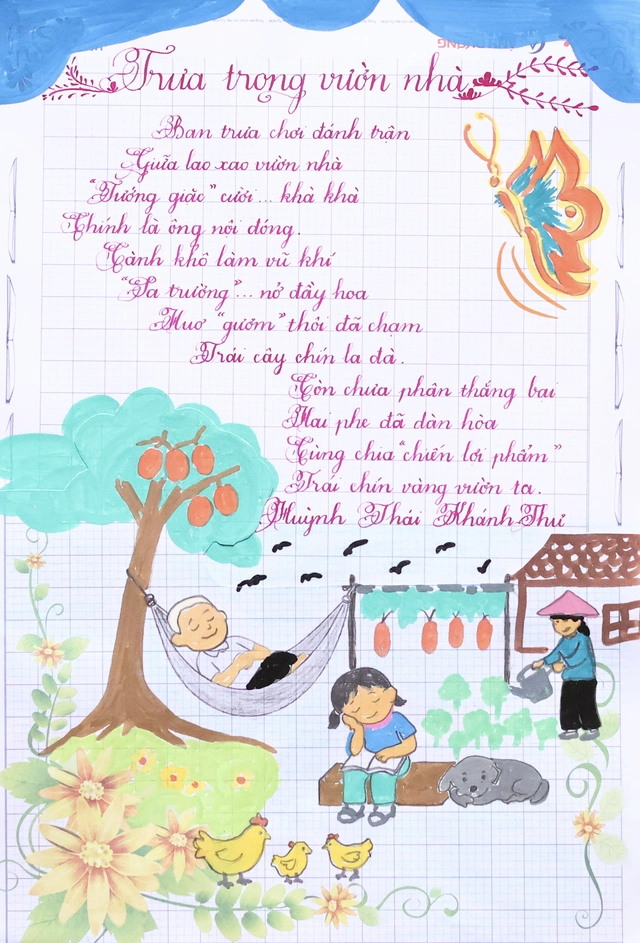 Trưa trong vườn nhà
Ban trưa chơi đánh trận
Giữa lao xao vườn nhà
"Tướng giặc" cười... khà khà
Chính là ông nội đóng.
Cành khô làm vũ khí
"Sa trường"... nở đầy hoa
Huơ "gươm" thôi đã chạm
Trái cây chín la đà.
Còn chưa phân thắng bai
Hai phe đã dàn hòa
Cùng chia "chiến lợi phẩm"
Trái chín vàng vườn ta.
Huỳnh Thái Khánh Thư